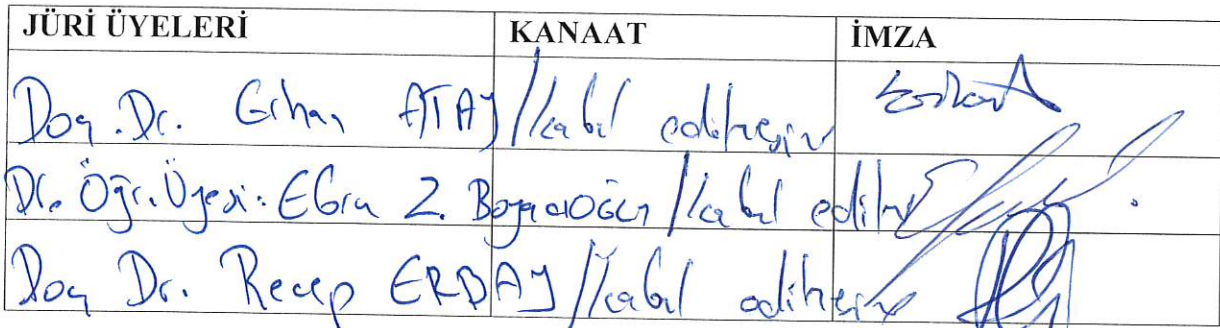 JÜRİ ÜYELERİ KANAAT İMZA
Doç. Dr. Erhan ATAY / kabul edilmesin
Dr. Öğr. Üyesi. Ebru Z. / kabul edilme
Doç Dr. Recep ERBAY / kabul edilmesin